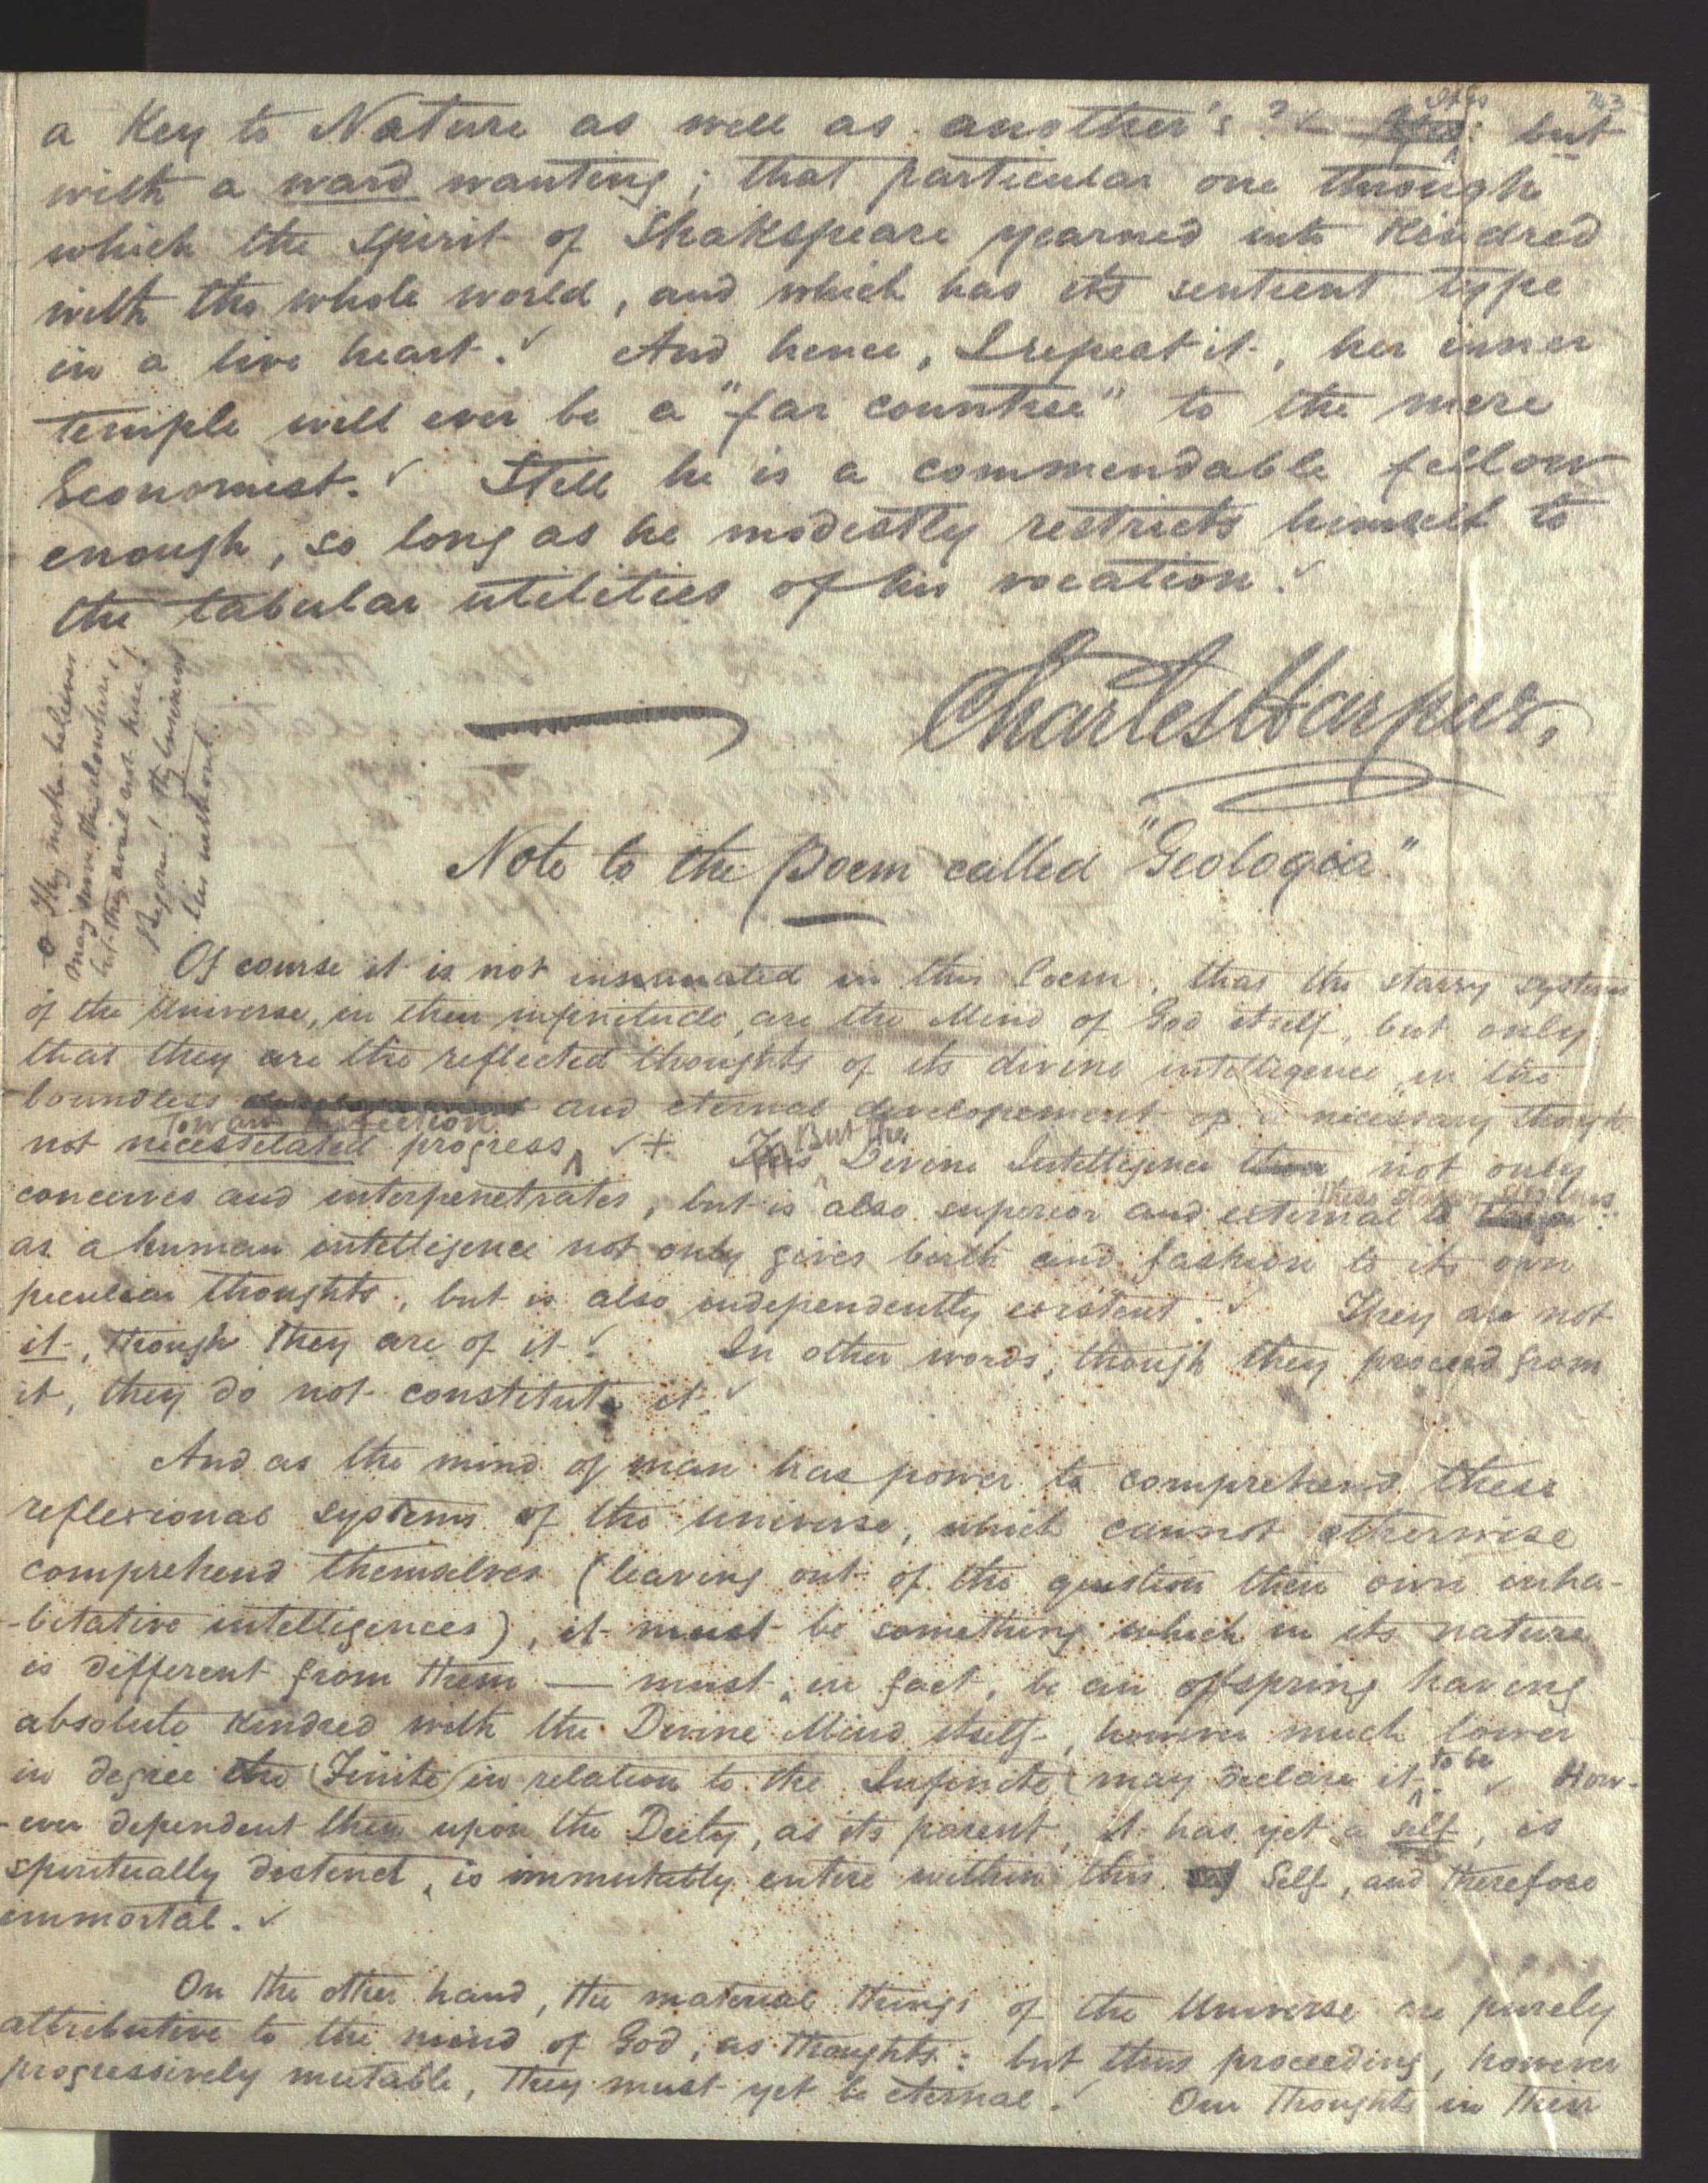 243
a Key to Nature as well as another's? It is: but
with a ward wanting; that particular one through
which the spirit of Shakspeare yearned into Kindred
with the whole world, and which has its sentient type
in a live heart. And hence, I repeat it, her inner
temple will ever be a "far countree" to the mere
Economist. Still he is a commendable fellow
enough, so long as he modestly restricts himself to
the tabular utilities of his vocation.
Charles Harpur,
They make-believe
may serve thee elsewhere,
but they avail not here!
Begone! thy business
lies without.
Note to the Poem called "Geologia."
Of course it is not insinuated in this Poem, that the starry systems
of the Universe, in their infinitude, are the Mind of God itself, but only
that they are the reflected thoughts of its divine intelligence in the
boundless and eternal developement of a necessary though
not necessitated progress towards perfection. + But the Divine Intelligence not only
conceives and interpenetrates, but is also superior and external to these starry systems:
as a human intelligence not only gives birth and fashion to its own
peculiar thoughts, but is also independently existent. They are not
it, though they are of it. In other words, though they proceed from
it, they do not constitute it.
And as the mind of man has power to comprehend these
reflexional systems of the universe, which cannot otherwise
comprehend themselves (leaving out of the question their own inha-
-bitative intelligences), it must be something which in its nature
is different from them — must, in fact, be an offspring having
absolute Kindred with the Divine Mind itself, however much lower
in degree the Finite in relation to the Infinite may declare it to be. How-
-ever dependent then upon the Deity, as its parent, it has yet a self, is
spiritually distinct, is immutably entire within this Self, and therefore
immortal.
On the other hand, the material things of the Universe are purely
attributive to the mind of God, as thoughts: but thus proceeding, however
progressively mutable, they must yet be eternal. Our thoughts in their